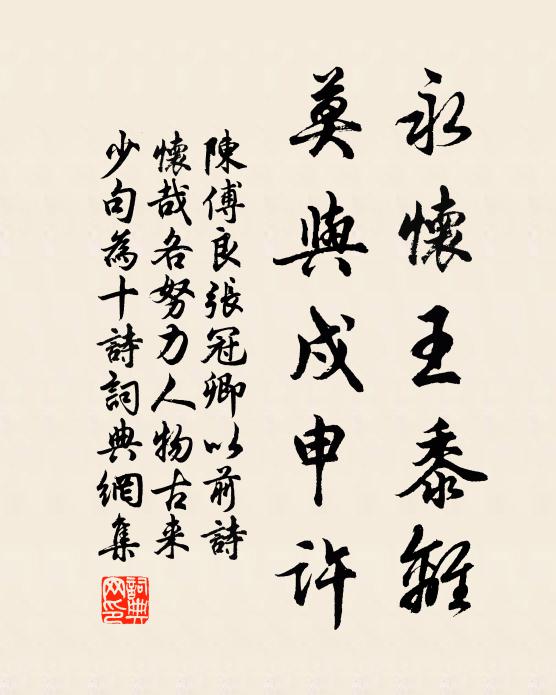 永懷王黍離
莫與戍申許
陳傅良張冠卿以前詩
懷哉各努力人物古来
少句為十詩詞典網集
詞典網印